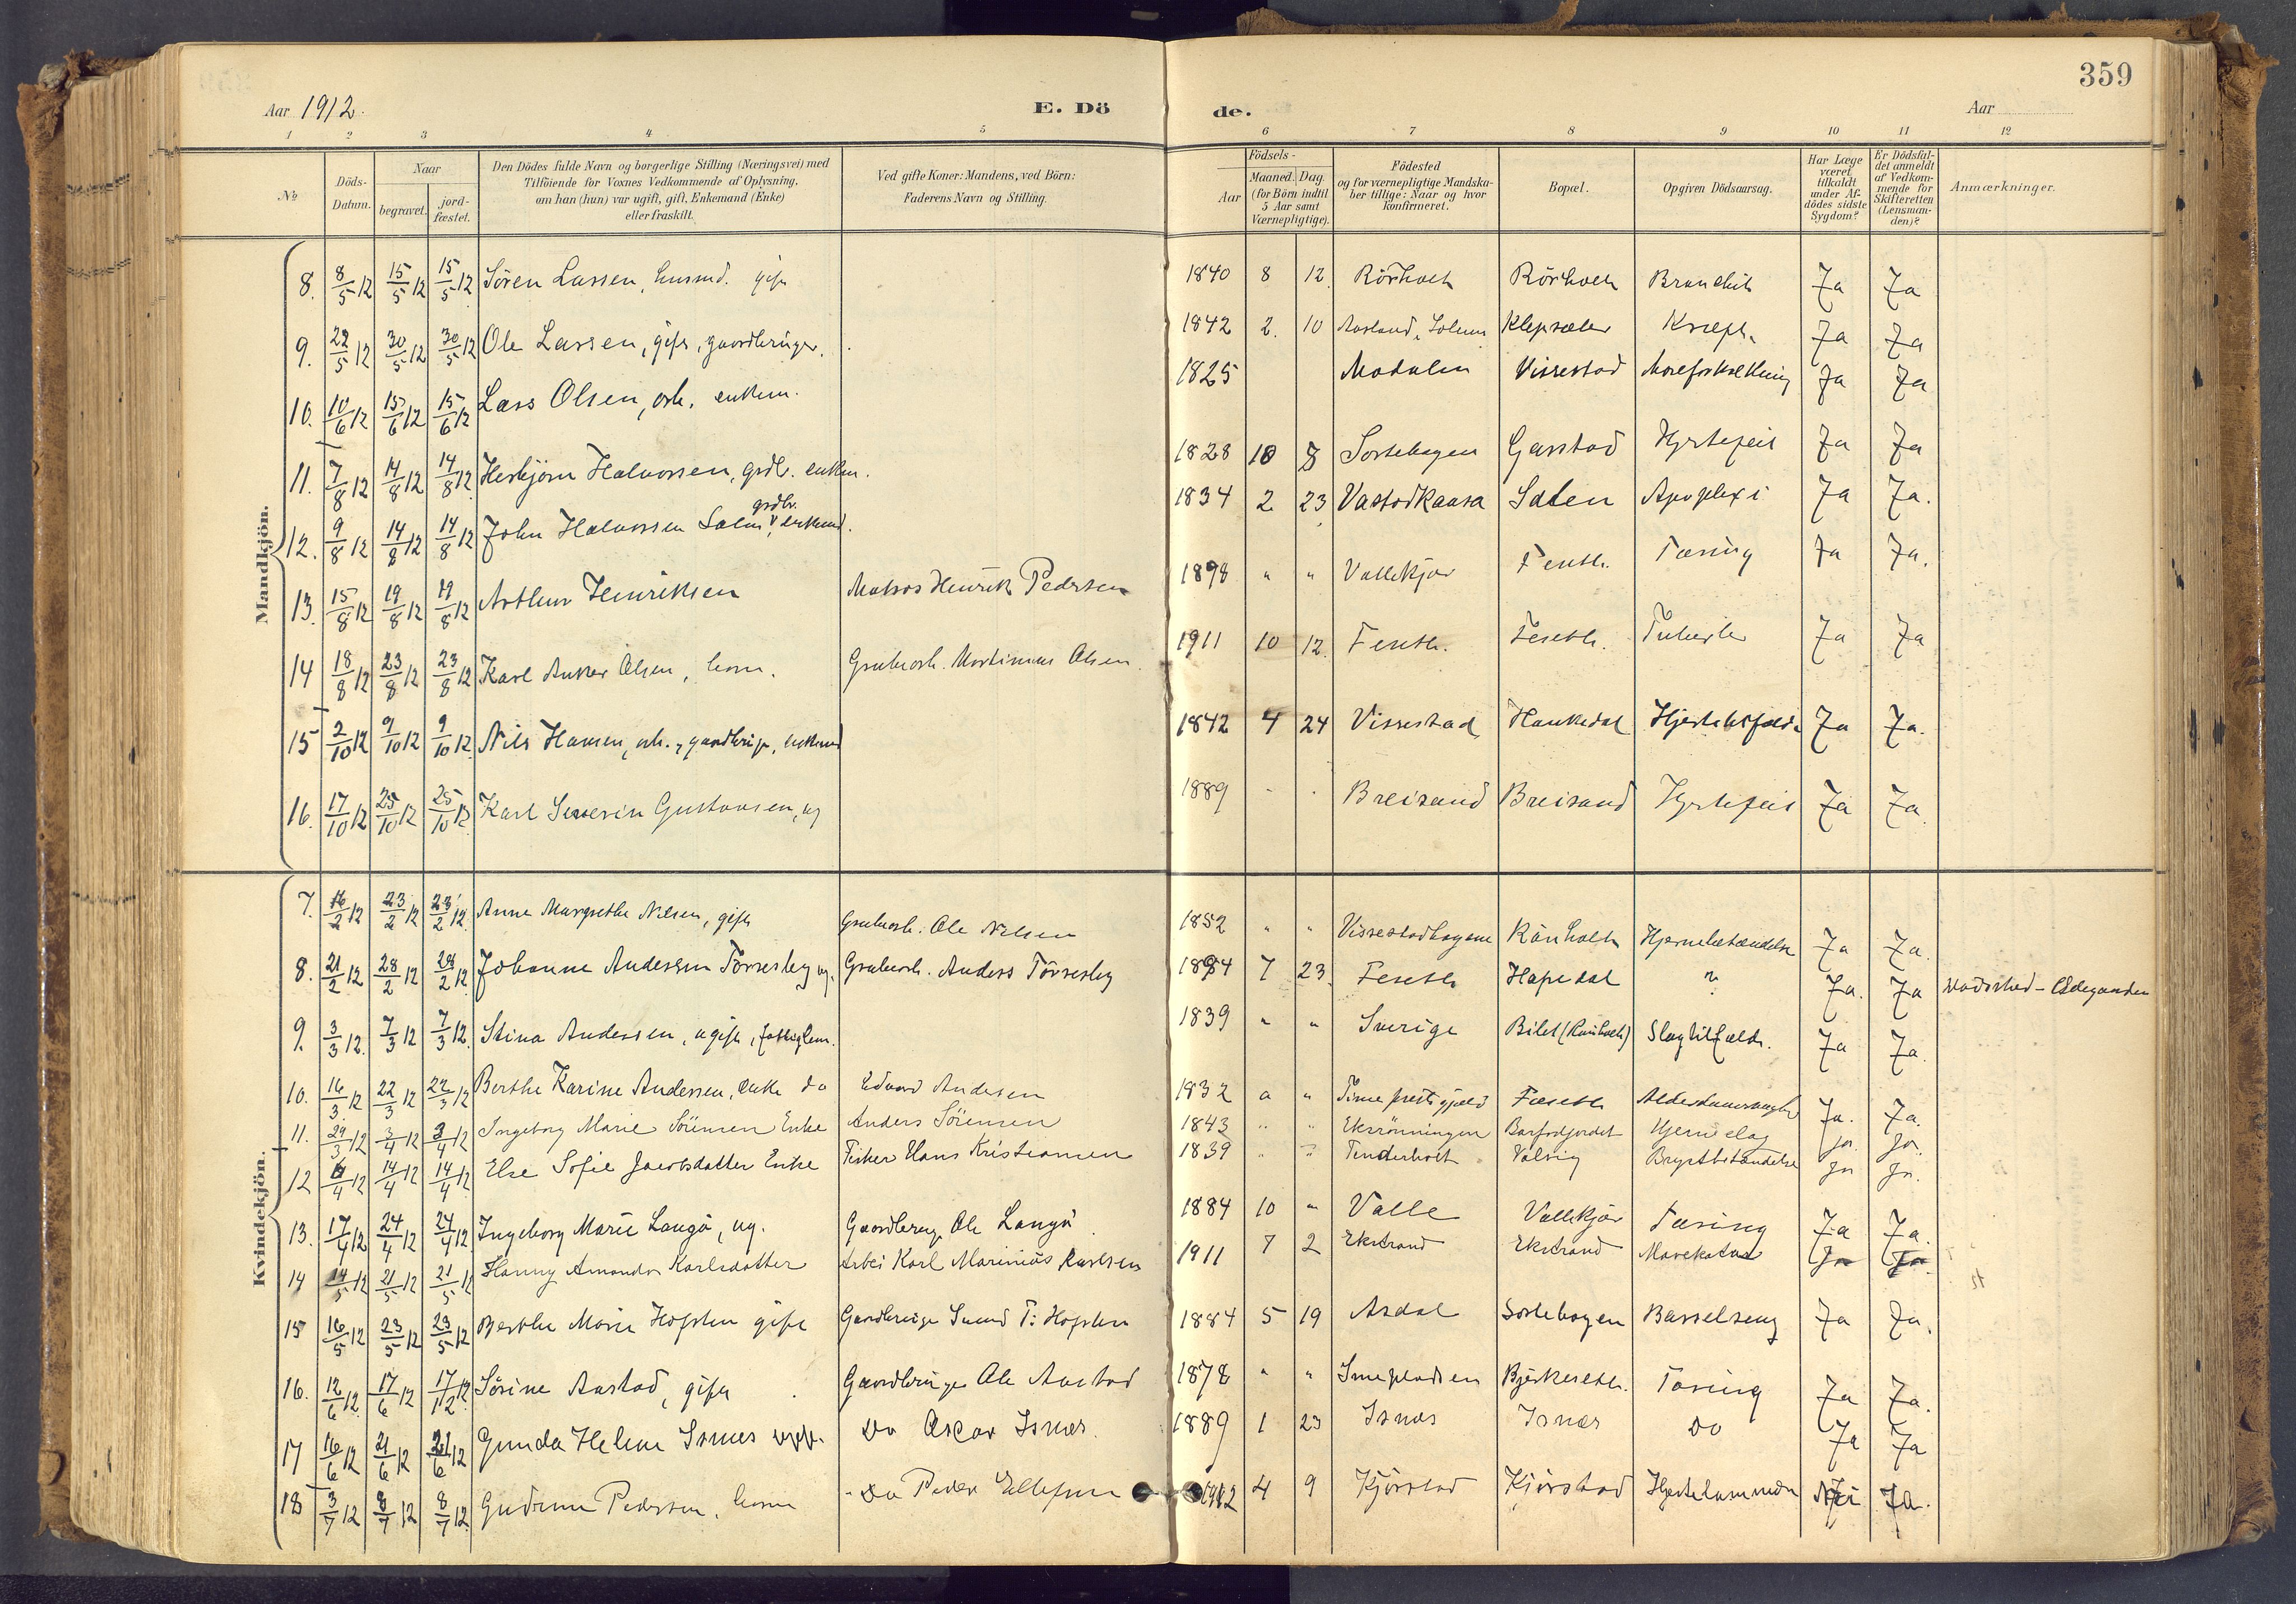 359
Aar 1912. E. Dö de. Aar
1 2 3 4 5 6 7 8 9 10 11 12
No
Döds-Datum.
Naar begravet. jordfæstet.
Den Dödes fulde Navn og borgerlige Stilling (Næringsvei) med
Tilföiende for Voxnes Vedkommende af Oplysning,
om han (hun) var ugift, gift, Enkemand (Enke)
eller fraskilt.
Ved gifte Koner: Mandens, ved Börn:
Faderens Navn og Stilling.
Födsels-
Aar
Maaned. Dag.
(for Börn indtil
5 Aar samt
Værnepligtige).
Födested
og for værnepligtige Mandska-
ber tillige: Naar og hvor
konfirmeret.
Bopæl.
Opgiven Dödsaarsag.
Har Læge
været
tilkaldt
under Af-
dödes sidste
Sygdom?
Er Dödsfal-
det anmeldt
af Vedkom-
mende for
Skifteretten
(Lensman-
den)?
Anmærkninger.
Mandkjön.
8. 8/5 12 15/5 12 15/5 12 Sören Lassen, husmd. gift 1840 8 12 Rörholt Rörholt Bronchit Ja Ja
9. 22/5 12 30/5 12 30/5 12 Ole Larsen, gift, gaardbruger. 1842 2. 10 Solum Klepsæter Kræft. Ja Ja
10. 10/6 12 15/6 12 15/6 12 Lars Olsen, arb. enkem. 1825 Vissestad Ja Ja
11. 7/8 12 14/8 12 14/8 12 Herbjörn Halvorsen, grdb. enkem. 1828 10 8 Sortebogen Garstad Hjertefeil Ja Ja
12. 9/8 12 14/8 12 14/8 12 John Halvorsen grdbr. enkemd. 1834 2 23 Apoplexi Ja Ja.
13. 15/8 12 19/8 12 19/8 12 Arthur Henriksen Matros Henrik Pedersen 1898 " " Vallekjær Tæring Ja Ja.
14 18/8 12 23/8 12 23/8 12 Karl Anker Olsen, barn. Grubearb. Martinius Olsen. 1911 10 12. Ja Ja
15 2/10 12 9/10 12 9/10 12 Nils Hansen, arb., gaardbrug, enkemd 1842 4 24 Vissestad Haukedal Ja Ja.
16. 17/10 12 25/10 12 25/10 12 Karl Severin Gustavsen, ug 1889 - - Breisand Breisand Hjertefeil Ja Ja
Kvindekjön.
7. 16/2 12 23/2 12 23/2 12 Anne Margrethe Nilsen, gift Grubearb. Ole Nilsen 1852 " " Vissestadbogene Rönholt Hjernebetændelse Ja Ja.
8. 21/2 12 28/2 12 28/2 12 Johanne Andersen Torsesby ug. Grubearb. Anders Torsesby 1894 7 23. Hapedal " Ja. Ja
9. 3/3 12. 7/3 12 7/3 12. Stina Andersen, ugift, fattiglem. 1839 " " Sverige Bilet (Rönholt) Slagtilfælde. Ja Ja.
10. 16/3 12 22/3 12 22/3 12 Berthe Karine Andersen, enke do Edvard Andersen 1832 " " præstegjæld Ja. Ja.
11. 29/3 12 3/4 12 3/4 12 Ingeborg Marie Sörensen Enke Anders Sörensen 1843 " " Ekrönningen Barfodjordet Hjerneslag ja. ja.
12 6/4 12 14/4 12 14/4 12 Else Sofie Jacobsdatter Enke Fisker Hans Kristiansen 1839 " " Tinderholt Valvig Brystbetændelse ja ja.
13. 17/4 12 24/4 12 24/4 12 Ingeborg Marie Langö, ug. Gaardbrug. Ole Langö 1884 10 " Valle Vallekjær Tæring Ja Ja.
14 14/5 12 21/5 12 21/5 12 Hanny Amanda Karlsdatter Arbei Karl Marinius Karlsen 1911 7 2 Ekstrand Ekstrand Mavekatar Ja Ja.
15 16/5 12 23/5 12 23/5 12 Berthe Marie Hopsten gift Gaardbruger T. Hopsten 1884 5 19 Asdal Sortebogen Barselseng Ja Ja.
16. 12/6 12 17/6 12 17/12 12 Sörine Aastad, gift Gaardbruger Ole Aastad 1878 " " Bjerkeseth. Tæring Ja Ja.
17 16/6 12 21/6 12 21/6 12 Gunda Helene Isnes Do Oscar Isnes. 1889 1 23 Isnes Isnes do Ja Ja
18 3/7 12 8/7 12 8/7 12 Gudrun Pedersen. barn Do Peder Ellefsen 1912 4 9 Kjörstad Kjörstad Nei Ja.